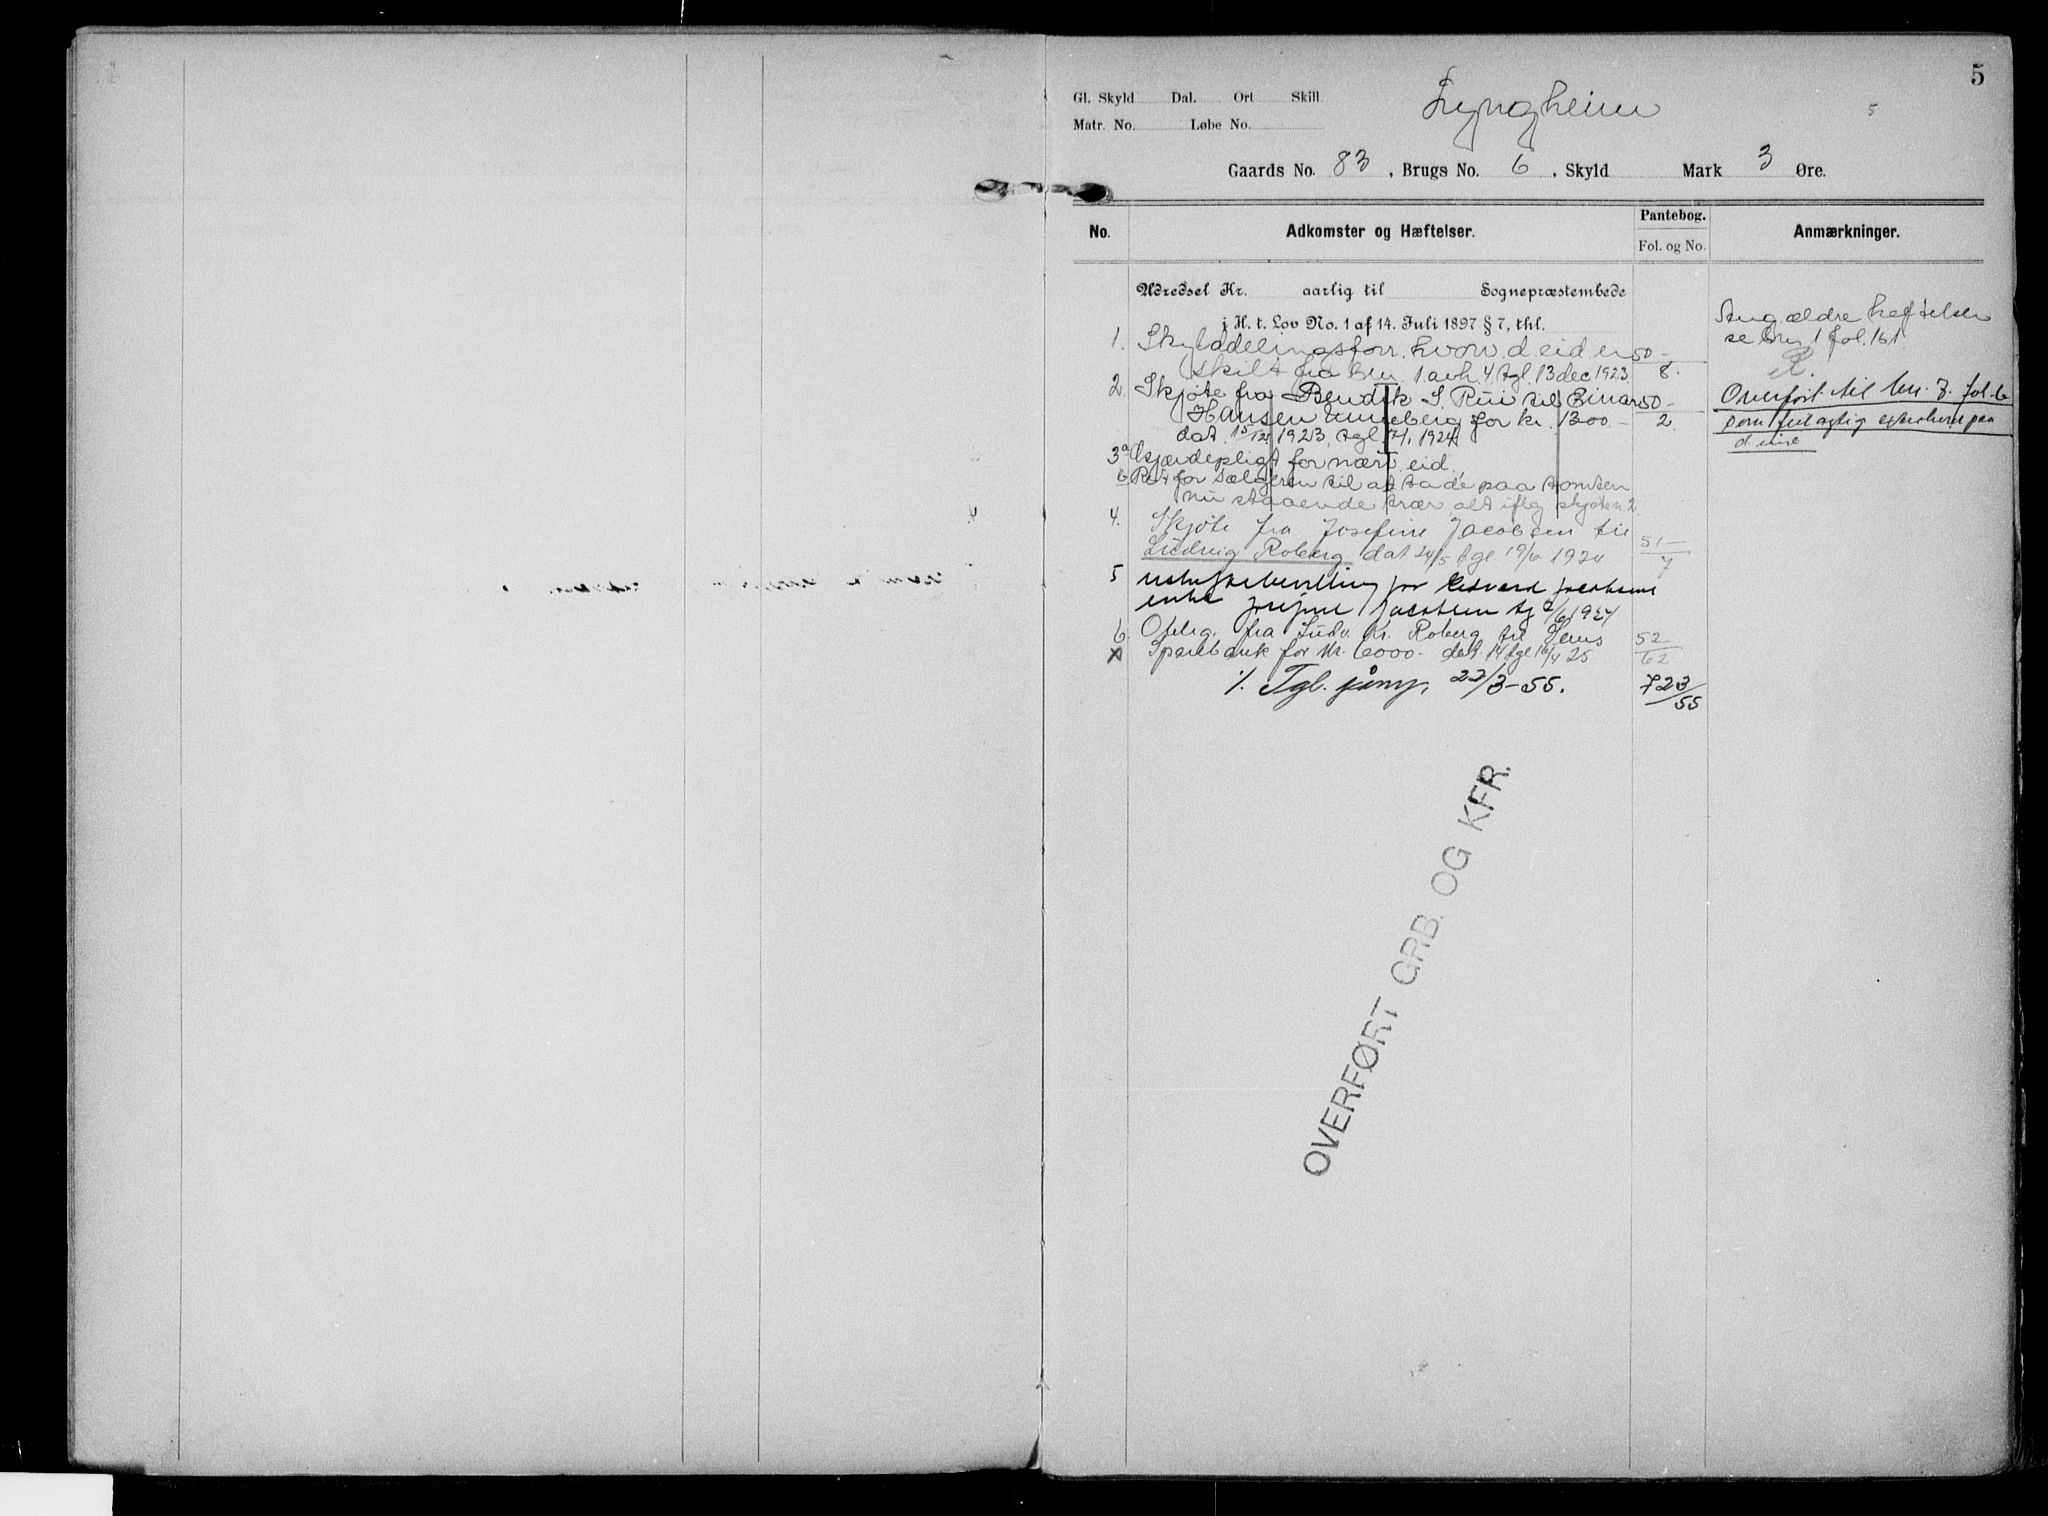 5
Gl. Skyld Dal. Ort Skill.
Lyngheim
5
Matr. No. Løbe No.
Gaards No. 83, Brugs No. 6, Skyld Mark 3 Øre.
No. Adkomster og Hæftelser. Pantebog. Fol. og No. Anmærkninger.
Udredsel Kr. aarlig til Sognepræstembede
i H. t. Lov No. 1 af 14. Juli 1897 § 7, thl.
Ang. ældre heftelser
se bnr 1 fol. 161
1. Skylddelingsforr. hvorv. d. eid er 50-
skilt fra bnr. 1 avh. 4 tgl. 13 dec 1923 8.
2. Skjøte fra Bendik S. Rui til Einar 50-
Hansen Unneberg for kr. 1300.- 2.
dat. 15/12 1923, tgl 7/1 1924
Overført til bnr. 7. fol. 6
som feilagtig paa
denne
3a Gjærdepligt for nærv. eid.
b Ret for sælgeren til at ta de paa tomten
nu staaende trær, alt iflg skjøte n 2.
4. Skjøte fra Josefine Jacobsen til
Ludvig Roberg dat 24/5 tgl 19/6 1924 51-/7
5 uskiftebevilling for Edvard Jacobsens
enke Josefine Jacobsen tg 2/6 1924
6. Oblig. fra Ludv. Kr. Roberg til Sems 52-
Sparebank for kr. 6000- dat. 14 tgl 16/4 25 62
./. Tgl. 22/3-55. 723/55
OVERFØRT GRB. OG KFR.